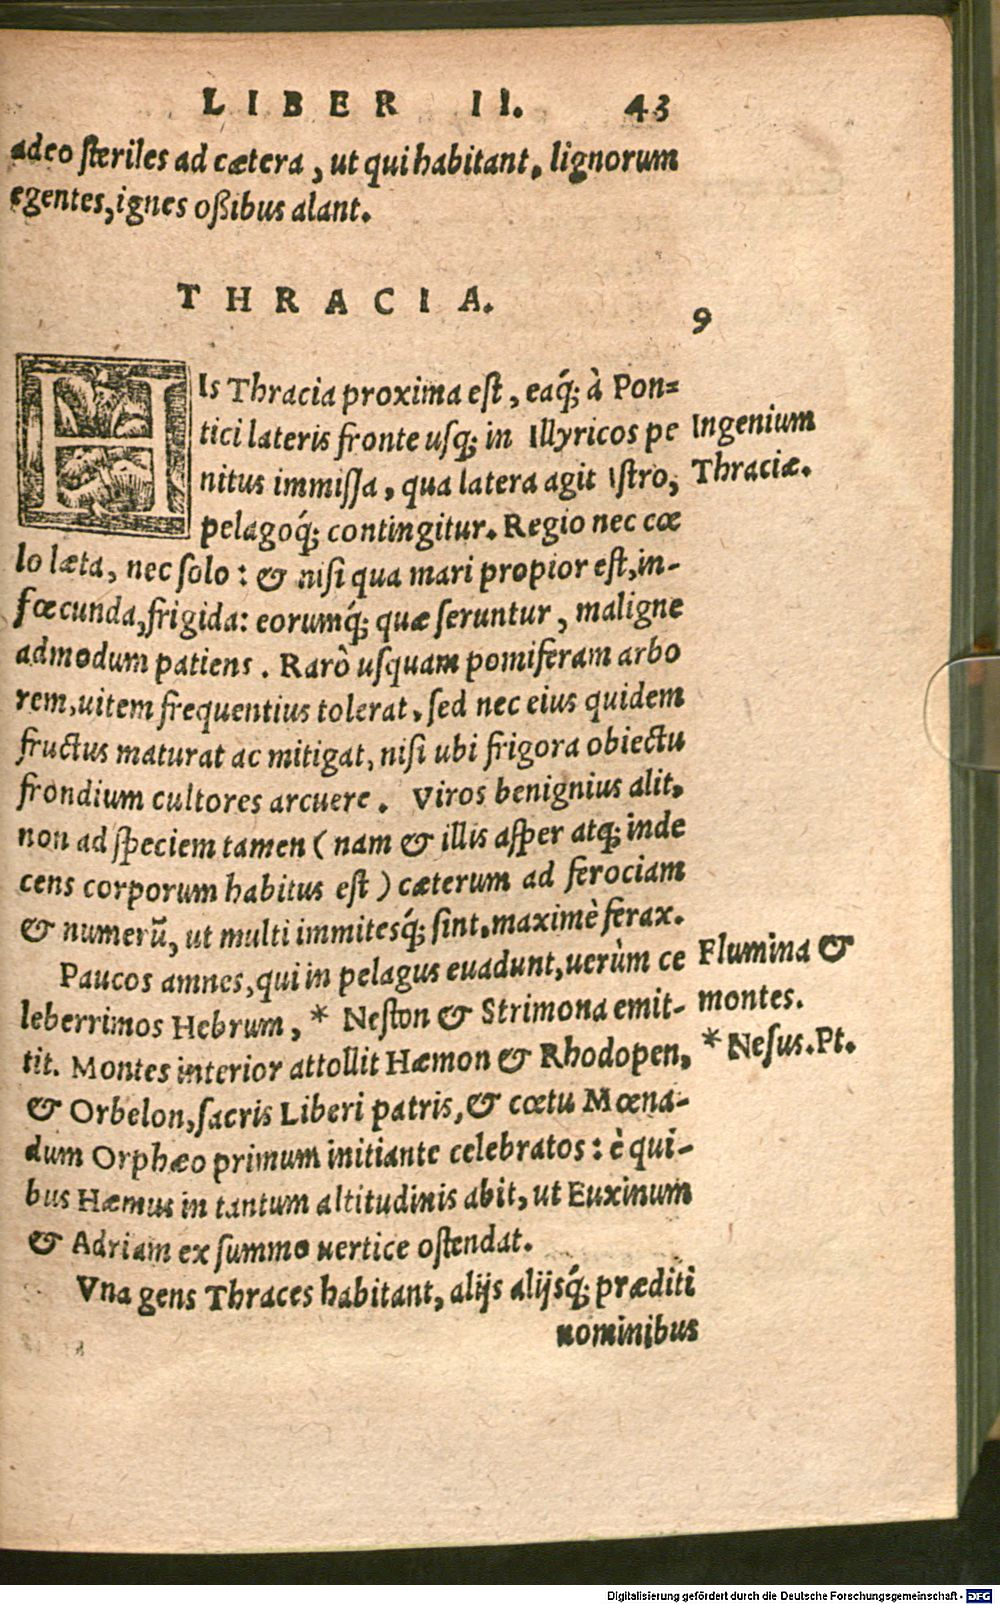 LIBER II. 43
adeo steriles ad cætera, ut qui habitant, lignorum
egentes, ignes oßibus alant.
THRACIA.
9
HIs Thracia proxima est, eaq́; à Pon=
tici lateris fronte usq; in Illyricos pe
Ingenium
nitus immissa, qua latera agit Istro,
Thraciæ.
pelagoq́; contingitur. Regio nec cœ
lo læta, nec solo: & nisi qua mari propior est, in-
fœcunda, frigida: eorumq́; quæ seruntur, maligne
admodum patiens. Rarò usquam pomiferam arbo
rem, uitem frequentius tolerat, sed nec eius quidem
fructus maturat ac mitigat, nisi ubi frigora obiectu
frondium cultores arcuere. Viros benignius alit,
non ad speciem tamen (nam & illis asper atq; inde
cens corporum habitus est) cæterum ad ferociam
& numerũ, ut multi immitesq́; sint, maximè ferax.
Paucos amnes, qui in pelagus euadunt, uerùm ce
Flumina &
leberrimos Hebrum, * Neston & Strimona emit-
montes.
tit. Montes interior attollit Hæmon & Rhodopen,
* Nesus. Pt.
& Orbelon, sacris Liberi patris, & cœtu Mœna-
dum Orphæo primum initiante celebratos: è qui-
bus Hæmus in tantum altitudinis abit, ut Euxinum
& Adriam ex summo uertice ostendat.
Vna gens Thraces habitant, alijs alijsq́; præditi
nominibus
Digitalisierung gefördert durch die Deutsche Forschungsgemeinschaft - DFG